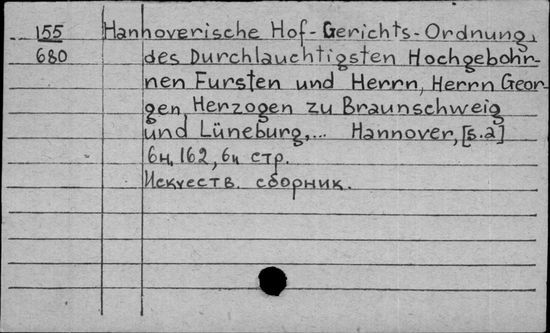 155 Hannoverische Hof-Gerichts-Ordnung,
680 des Durchlauchtigsten Hochgebohr-
nen Fursten und Herrn, Herrn Geor-
gen, Herzogen zu Braunschweig
und Lüneburg,... Hannover, [s.a]
6н, 162, 6н стр.
Искусств. сборник.